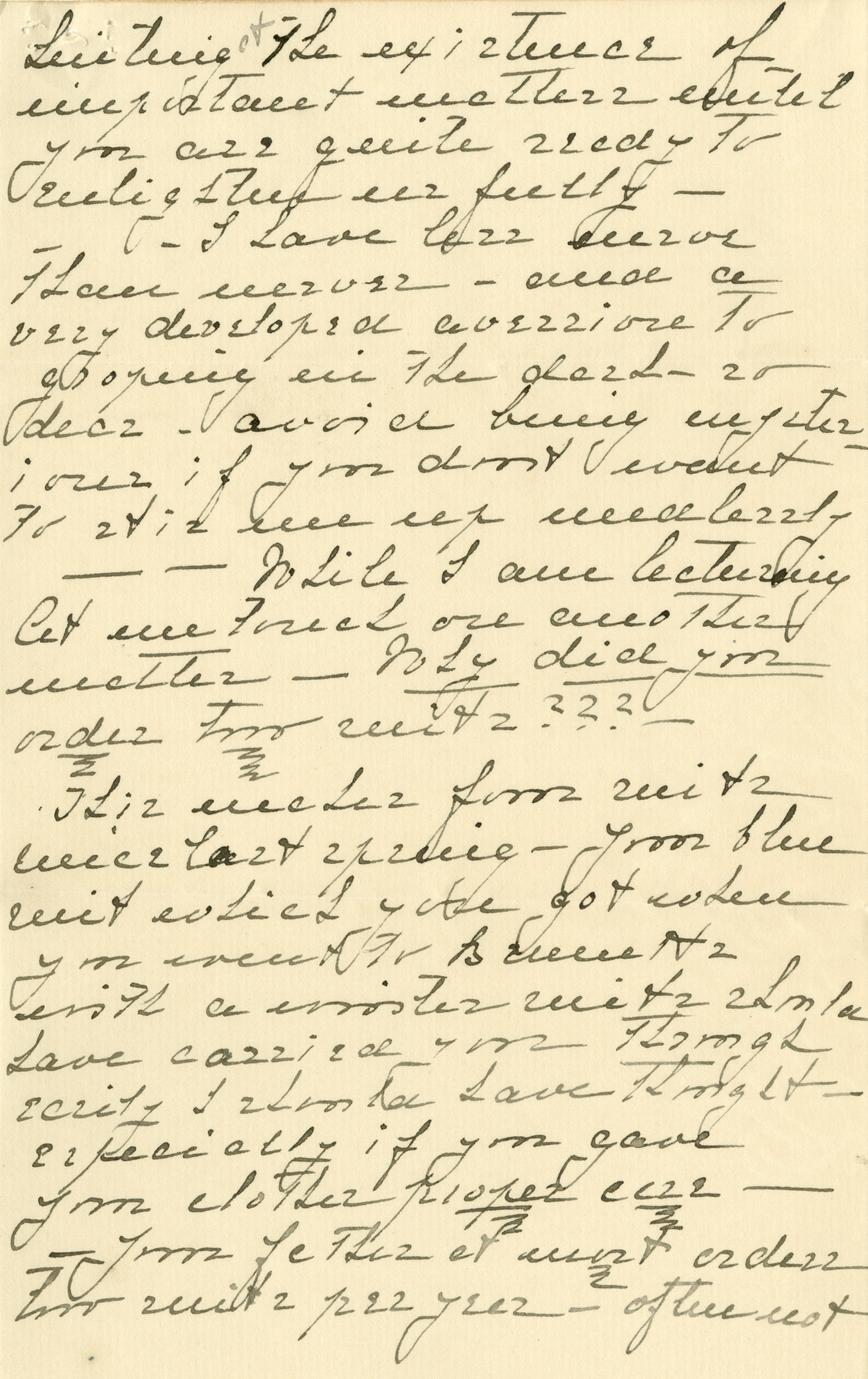 hinting at the existence of
important matters until
you are quite ready to
enlighten me fully —
— - I have less nerve
than nerves - and a
very developed aversion to
groping in the dark - so
dear - avoid being myster-
ious if you don't want
to stir me up needlessly
— — While I am lecturing
let me touch on another
matter — Why did you
order two suits ??? —
This makes four suits
since last spring - Your blue
suit which you got when
you went to Bennetts
with a winter suits should
have carried you through
easily I should have thought —
especially if you gave
your clothes proper care —
— Your father at most orders
two suits per year - often not